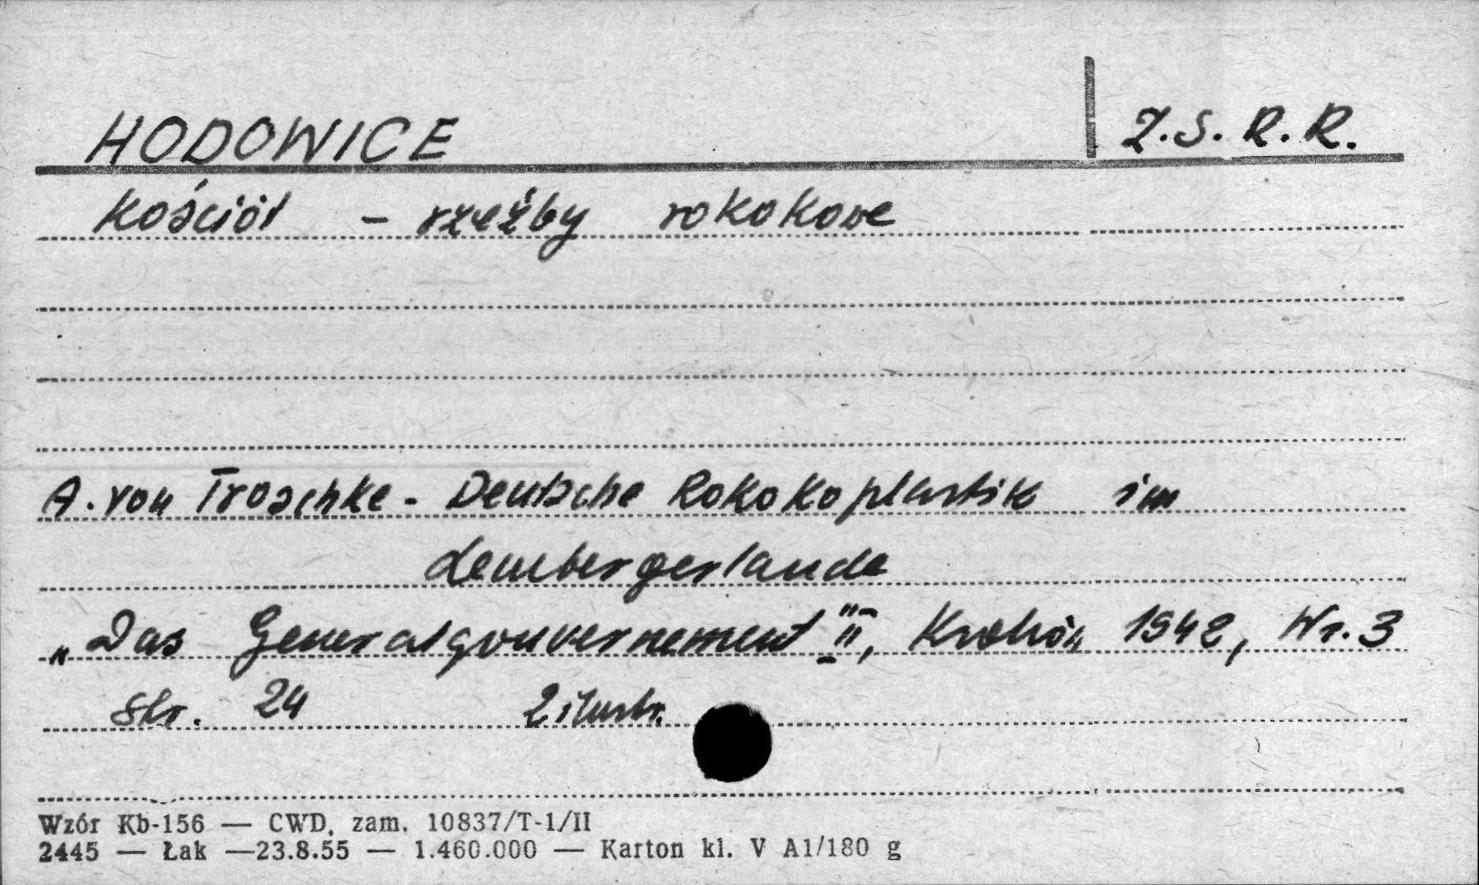 HODOWICE Z.S.R.R.
Kościół - rzeźby rokokowe
A. von Troschke - Deutsche Rokokoplastik im
Lembergerlande
„Das Generalgouvernement" II, Kraków 1942, Nr. 3
str. 24 2 ilustr.
Wzór Kb-156 — CWD, zam. 10837/T-1/II
2445 — Łak —23.8.55 — 1.460.000 — Karton kl. V A1/180 g